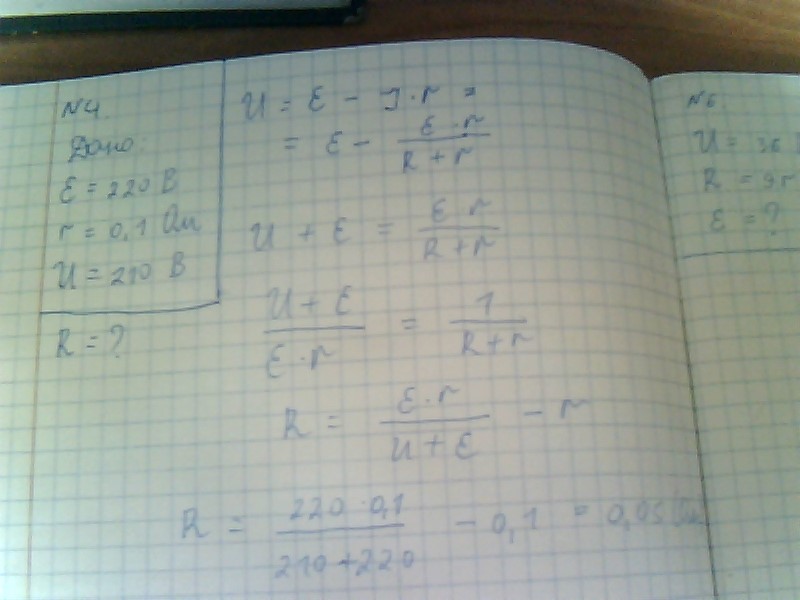 N4.
Дано:
ε = 220 В
r = 0,1 Ом
U = 210 В
R = ?
U = ε - J·r =
= ε - ε·r / R + r
U + ε = ε r / R + r
U + ε / ε·r = 1 / R + r
R = ε·r / U + ε - r
R = 220·0,1 / 210 + 220 - 0,1 = 0,05 Ом
N6
U = 36
R = 9r
ε = ?